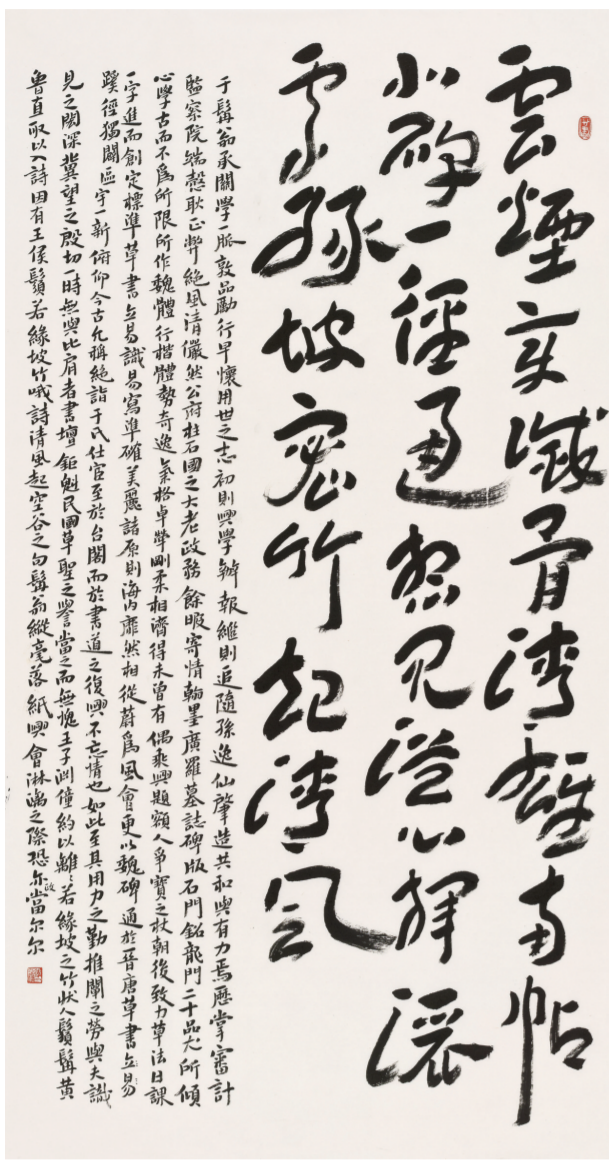 雲煙識骨清雄南帖
北碑一徑通想見從心揮灑
處緣坡密竹起清風
于髯翁承關學一脈敦品勵行早懷用世之志初則興學辦報繼則追隨孫逸仙肇造共和與有力焉歷掌審計
監察院端愨耿正弊絕風清儼然公府柱石國之大老政務餘暇寄情翰墨廣羅墓誌碑版石門銘龍門二十品尤所傾
心學古而不為所限所作魏體行楷體勢奇逸氣格卓犖剛柔相濟得未曾有偶乘興題額人爭寶之杖朝後致力草法日課
一字進而創定標準草書立易識易寫準確美麗諸原則海內靡然相從蔚為風會更以魏碑通於晉唐草書立易
蹊徑獨闢區宇一新俯仰今古允稱絕詣于氏仕宦至於台閣而於書道之復興不忘情也如此至其用力之勤推闡之勞與夫識
見之閎深冀望之殷切一時無與比肩者書壇鉅魁民國草聖之譽當之而無愧王子淵僮約以離離若緣坡之竹狀人鬚髯黃
魯直取以入詩因有王侯鬚若緣坡竹哦詩清風起空谷之句髯翁縱毫落紙興會淋漓之際恐亦當尔尔